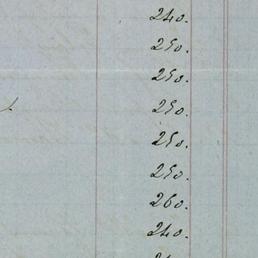 240.
250.
250.
250.
250.
250.
260.
240.